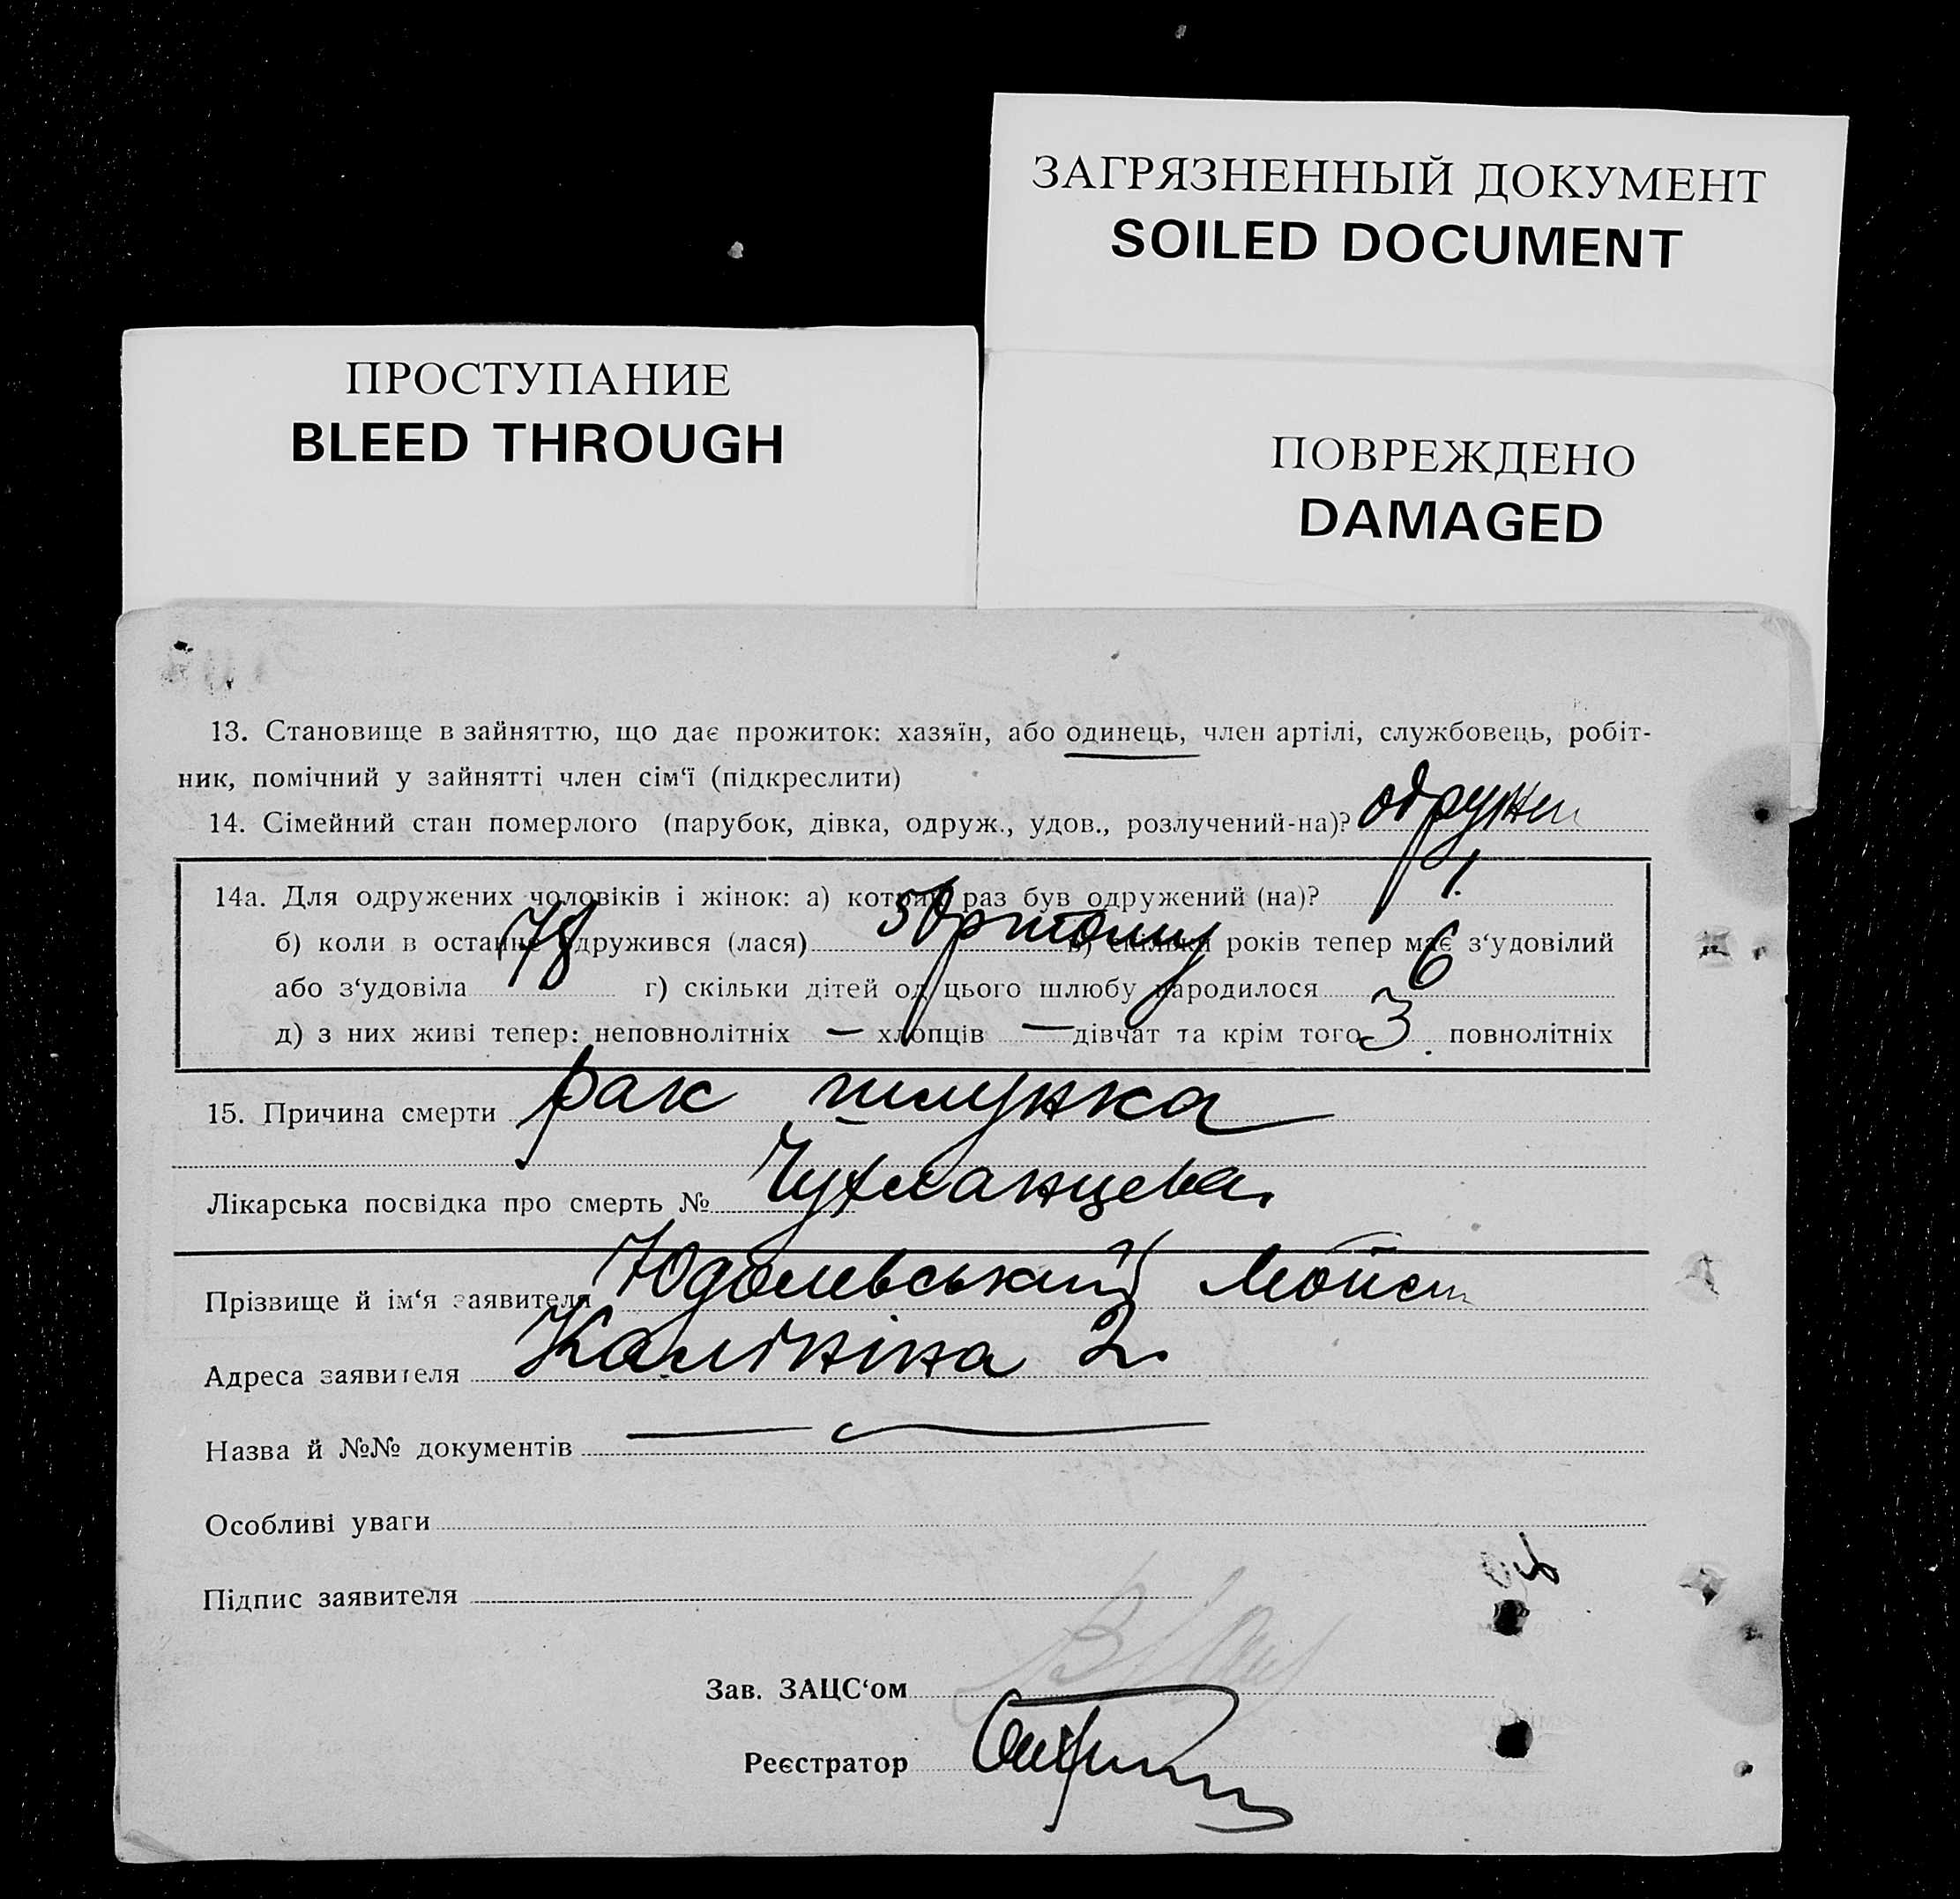 ЗАГРЯЗНЕННЫЙ ДОКУМЕНТ
SOILED DOCUMENT
ПРОСТУПАНИЕ
BLEED THROUGH
ПОВРЕЖДЕНО
DAMAGED
13. Становище в зайняттю, що дає прожиток: хазяїн, або одинець, член артілі, службовець, робіт-
ник, помічний у зайнятті член сім‘ї (підкреслити)
14. Сімейний стан померлого (парубок, дівка, одруж., удов., розлучений-на)? одружен
14а. Для одружених чоловіків і жінок: а) котрий раз був одружений (на)? 1.
б) коли в останнє одружився (лася) в) скільки років тепер має з‘удовілий
або з‘удовіла 78 г) скільки дітей од цього шлюбу народилося 6
д) з них живі тепер: неповнолітніх — хлопців — дівчат та крім того 3 повнолітніх
15. Причина смерти рак шлунка
Лікарська посвідка про смерть № Чухланцева
Прізвище й ім‘я заявителя Юдолевський Мойсей
Адреса заявителя Калініна 2
Назва й №№ документів —
Особливі уваги
Підпис заявителя
Зав. ЗАЦС‘ом
Реєстратор